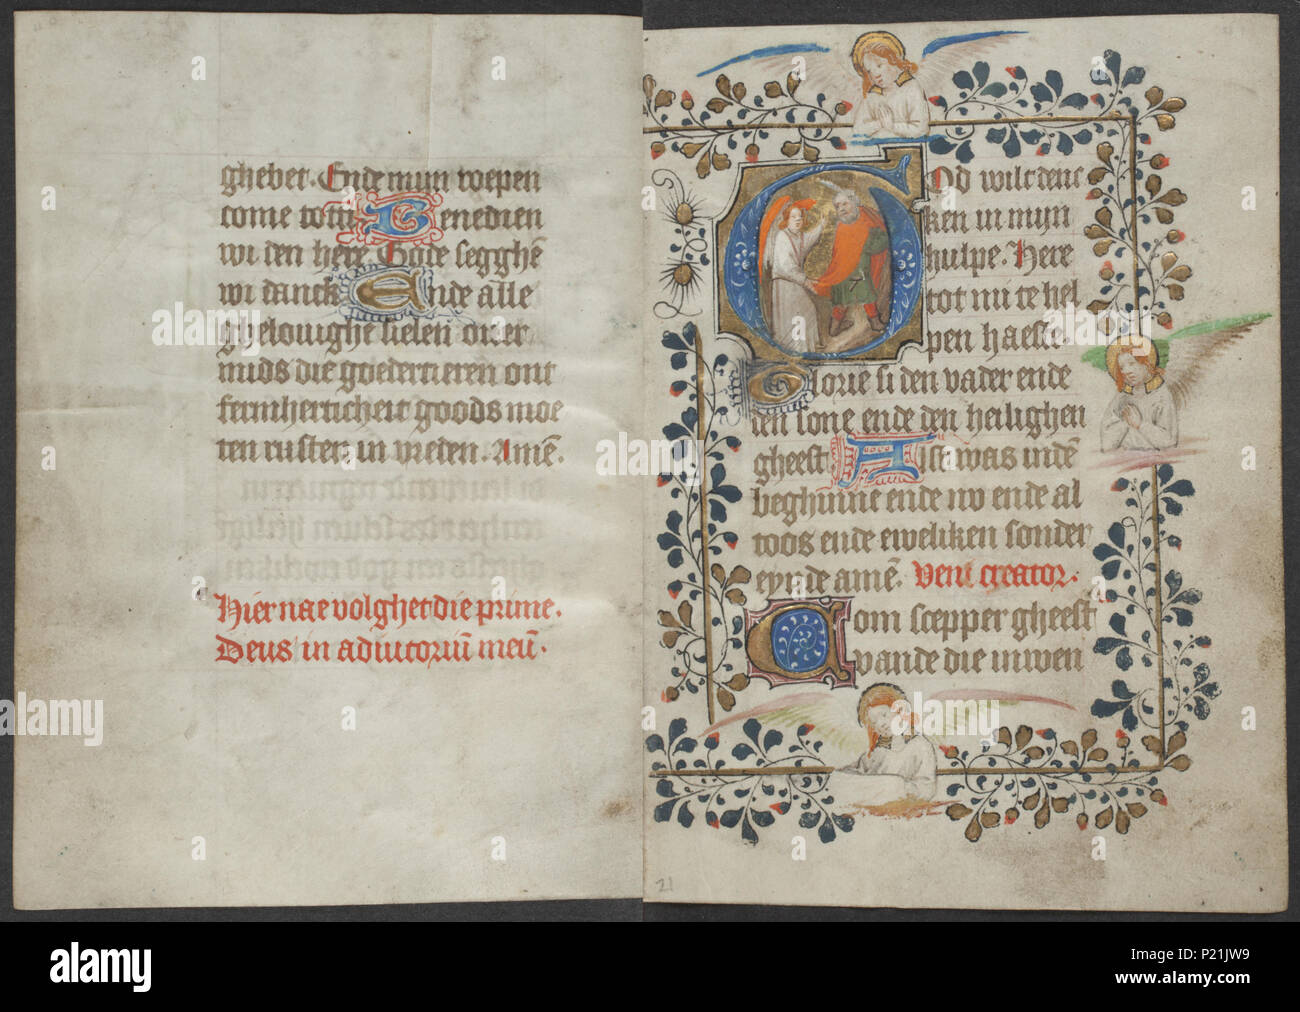 ghebet. Ende mijn roepen
come tot ti Benedien
wi den here Gode segghē
wi danck Ende alle
ghelouighe sielen ouer
mids die goedertieren ont
fermherticheit goods moe
ten rusten in vreden. Amē.
Hier nae volghet die prime.
Deus in adiutoriū meū.
God wilt denc
ken in mijn
hulpe. Here
tot mi te hel
pen haeste.
Glorie si den vader ende
den sone ende den heilighen
gheest Als't was indē
beghinne ende nv ende al
toos ende eweliken sonder
eynde amē. Veni creator.
Com scepper gheest
vande die inwen
21
alamy
Image ID: P21JW9
www.alamy.com